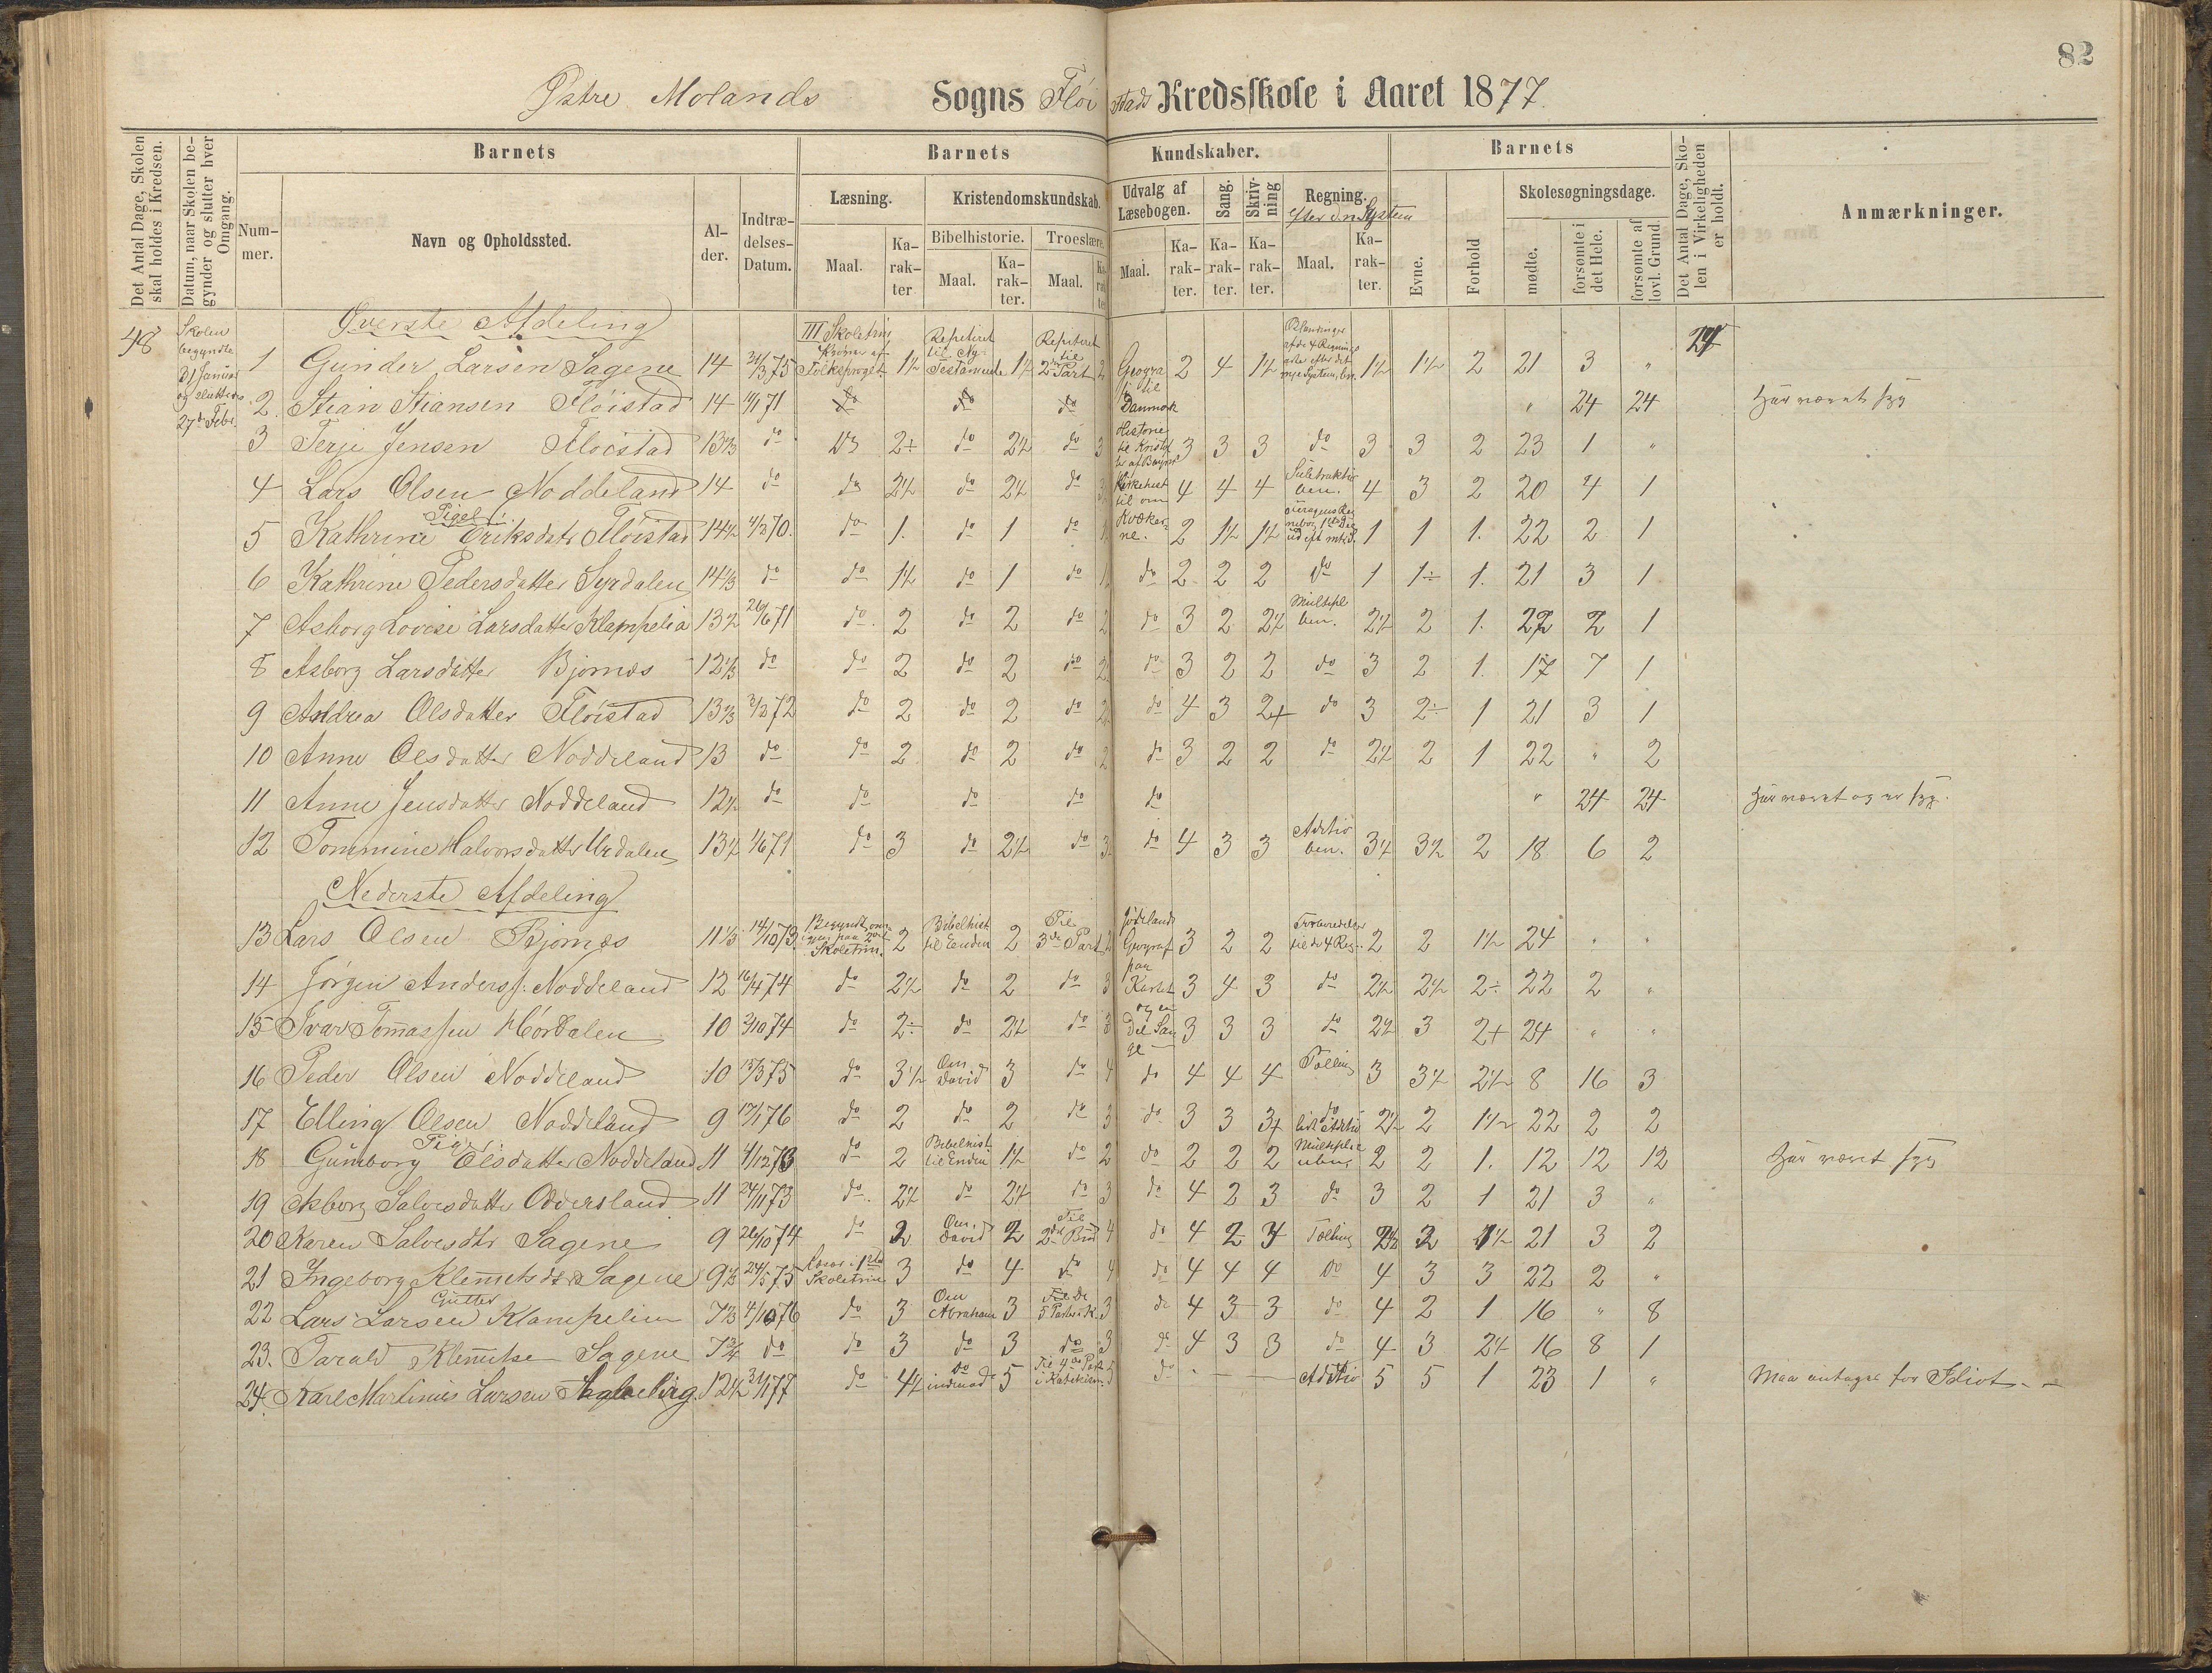 82
Østre Molands Sogns Flöistads Kredsskole i Aaret 1877.
Det Antal Dage, Skolen skal holdes i Kredsen.
Datum, naar Skolen begynder og slutter hver Omgang.
Barnets
Nummer.
Navn og Opholdssted.
Alder.
Indtrædelses-Datum.
Barnets Kundskaber.
Læsning. Maal. Karakter
Kristendomskundskab.
Bibelhistorie. Maal. Karakter.
Troeslære. Maal. Karakter
Udvalg af Læsebogen. Maal. Karakter.
Sang. Karakter.
Skrivning Karakter.
Regning. efter d. n. System Maal. Karakter.
Barnets
Evne.
Forhold
Skolesøgningsdage.
mødte.
forsømte i det Hele.
forsømte af lovl. Grund.
Det Antal Dage, Skolen i Virkeligheden er holdt.
Anmærkninger.
48 Skolen begyndte 31 Januar og sluttedes 27de Febr.
Øverste Afdeling
1 Gunder Larsen Sagene 14 III Skoletrin Repeteret til Ny Testamente Repeteret til 2den Part 2 Geografi til Danmark 2 4 1½ 1½ 1½ 2 21 3 " 24
2 Stian Stiansen Flöistad 14 do do do " 24 24 Har været syg
3 Terje Jensen Flöistad 13⅔ do do 2÷ do 2½ do 3 Historie 3 3 3 do 3 3 2 23 1 "
4 Lars Olsen Noddeland 14 do do 2½ do 2½ do 3 til om 4 4 4 Subtraktion ben. 4 3 2 20 4 1
Piger
5 Kathrine Eriksdatr Flöistad 14½ do 1. do 1 do 1 Kvækerne. 2 1½ 1½ 1 1 1. 22 2 1
6 Kathrine Pedersdatter Syrdalen 14⅓ do do 1½ do 1 do 1 do 2 2 2 do 1 1÷ 1. 21 3 1
7 Asborg Lovise Larsdatter Klampelia 13½ 26/6 71 do 2 do 2 do 2 do 3 2 2½ Multipl ben. 2½ 2 1. 22 2 1
8 Asborg Larsdatter Bjornæs 12⅓ do do 2 do 2 do 2 do 3 2 2 do 3 2 1. 17 7 1
9 Andrea Olsdatter Flöistad 13⅔ do 2 do 2 do 2 do 4 3 2+ do 3 2÷ 1 21 3 1
10 Anne Olsdatter Noddeland 13 do do 2 do 2 do 2 do 3 2 2 do 2½ 2 1 22 " 2
11 Anne Jensdatter Noddeland 12½ do do do do do " 24 24 Har været og er syg.
12 Tommine Halvorsdatter Urdalen 13½ 1/6 71 do 3 do 2½ do 3 do 4 3 3 Aditio ben. 3½ 3½ 2 18 6 2
Nederste Afdeling
13 Lars Olsen Bjornæs 11⅓ 14/10 73 Skoletrin. 2 Bibelhist til Enden 2 Til 3de Part 2 Jödeland Geograf paa Kartet og en Del Sange 3 2 2 Forberedelse til de 4 Reg. 2 2 1½ 24 " "
14 Jörgen Anderss. Noddeland 12 16/4 74 do 2½ do 2 do 3 3 4 3 do 2½ 2½ 2÷ 22 2 "
15 Ivar Tomassen Hördalen 10 3/10 74 do 2÷ do 2½ do 3 3 3 3 do 2½ 3 2+ 24 " "
16 Peder Olsen Noddeland 10 15/3 75 do 3½ Om David 3 do 4 do 4 4 4 Tælling 3 3½ 2½ 8 16 3
17 Elling Olsen Noddeland 9 17/1 76 do 2 do 2 do 3 do 3 3 3+ do lidt Aditio 2½ 2 1½ 22 2 2
Piger.
18 Gunborg Olsdatter Noddeland 11 4/12 73 do 2 Bibelhist til Enden 1½ do 2 do 2 2 2 2 2 1. 12 12 12 Har været syg
19 Asborg Salvesdatter Oddersland 11 24/11 73 do 2½ do 2½ do 3 do 4 2 3 do 3 2 1 21 3 "
20 Karen Salvesdtr Sagene 9 26/10 74 do 2 Om David 2 Til 2det Bud 4 do 4 2 Tælling 2½ 2 1½ 21 3 2
21 Ingeborg Klemetsdtr Sagene 9½ 24/5 75 Læser i 1ste Skoletrin 3 do 4 do 4 do 4 4 4 do 4 3 3 22 2 "
Gutter
22 Lars Larsen Klampelien 7⅔ 4/10 76 do 3 Om Abraham 3 3 do 4 3 3 do 4 2 1 16 " 8
23. Tarald Klemetsen Sagene 7¾ do do 3 do 3 do 3 do 4 3 3 do 4 3 2½ 16 8 1
24. Karl Martinius Larsen 12½ 31/1 77 do 4½ do 5 5 do - - - Aditio 5 5 1 23 1 " Maa antages for Idiot. -